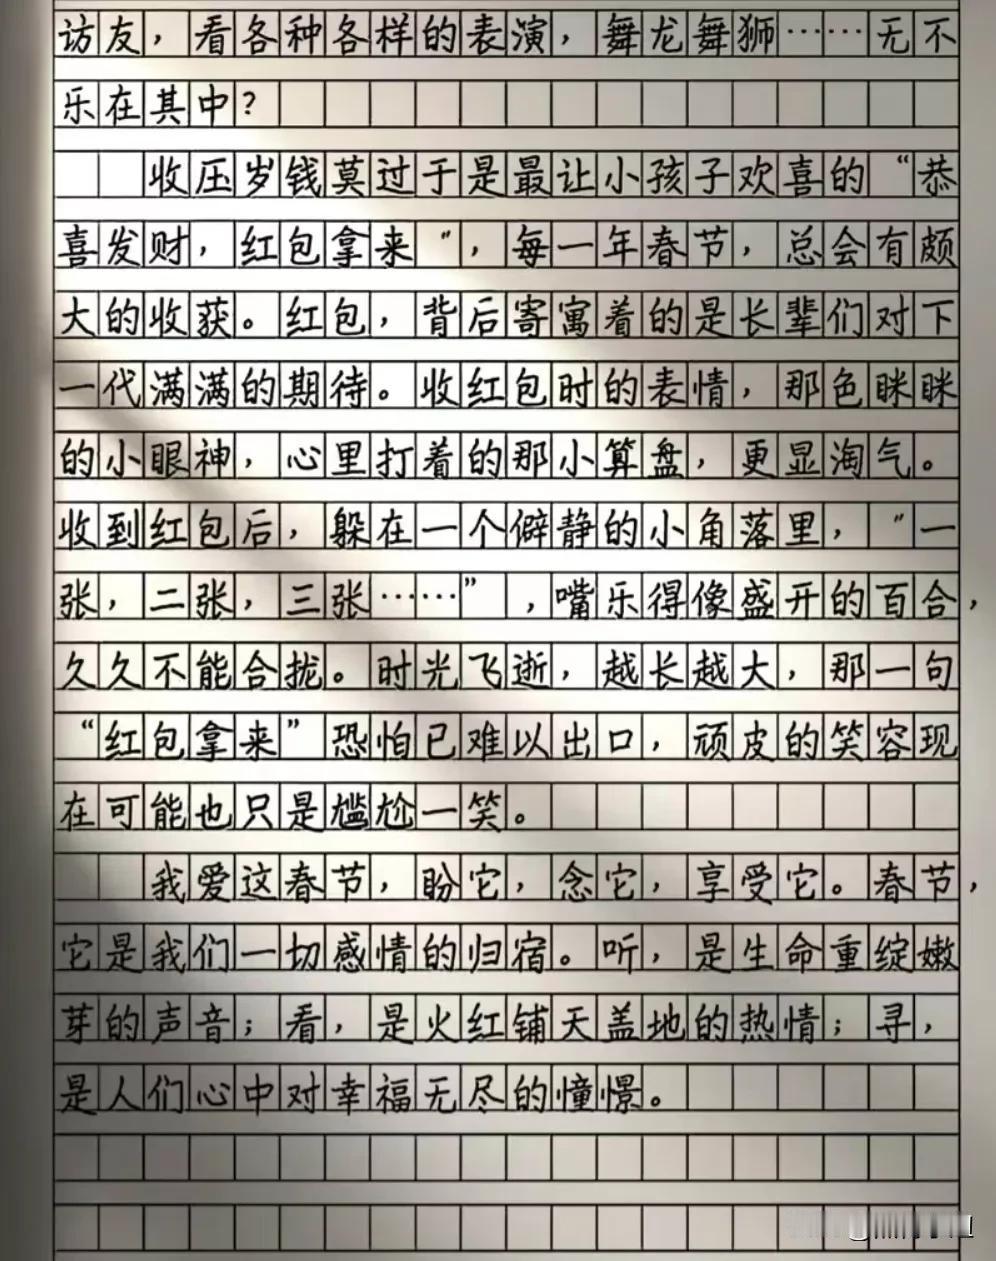 访友，看各种各样的表演，舞龙舞狮……无不
乐在其中？
收压岁钱莫过于是最让小孩子欢喜的“恭
喜发财，红包拿来”，每一年春节，总会有颇
大的收获。红包，背后寄寓着的是长辈们对下
一代满满的期待。收红包时的表情，那色眯眯
的小眼神，心里打着的那小算盘，更显淘气。
收到红包后，躲在一个僻静的小角落里，“一
张，二张，三张……”，嘴乐得像盛开的百合，
久久不能合拢。时光飞逝，越长越大，那一句
“红包拿来”恐怕已难以出口，顽皮的笑容现
在可能也只是尴尬一笑。
我爱这春节，盼它，念它，享受它。春节，
它是我们一切感情的归宿。听，是生命重绽嫩
芽的声音；看，是火红铺天盖地的热情；寻，
是人们心中对幸福无尽的憧憬。